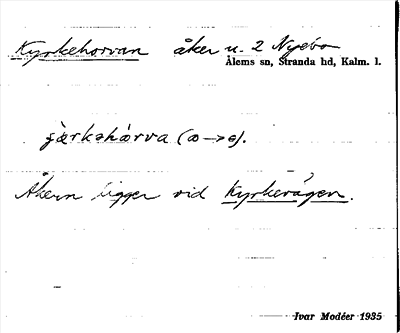 Kyrkehorvan åker u. 2 Nyebo
Ålems sn, Stranda hd, Kalm. l.
(æ→e).
Åkern ligger vid Kyrkevägen.
Ivar Modéer 1935